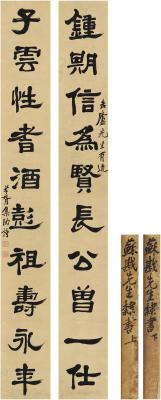 蘇戡先生隸書下
蘇戡先生隸書上
鍾期信為賢長公曾一仕
先生有道
子雲性耆酒彭祖壽永年
孝胥集陶詩